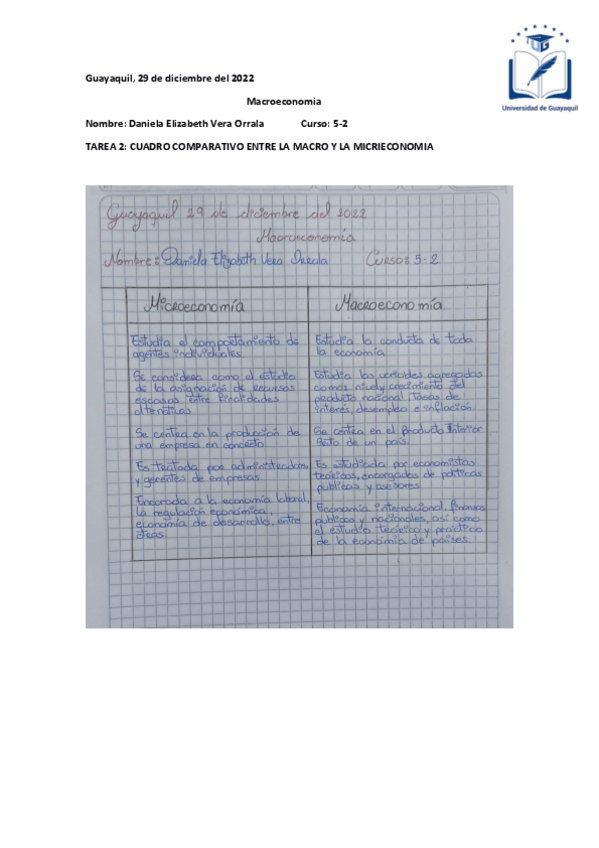 Universidad de Guayaquil
Guayaquil, 29 de diciembre del 2022
Macroeconomia
Nombre: Daniela Elizabeth Vera Orrala Curso: 5-2
TAREA 2: CUADRO COMPARATIVO ENTRE LA MACRO Y LA MICRIECONOMIA
Guayaquil 29 de diciembre del 2022
Macroeconomía
Nombre: Daniela Elizabeth Vera Orrala Curso: 5-2
Microeconomía
Estudia el comportamiento de
agentes individuales.
Se considera como el estudio
de la asignación de recursos
escasos entre finalidades
alternativas
Se centra en la producción de
una empresa en concreto
Es tratada por administradores
y gerentes de empresas.
Encarada a la economía laboral,
la regulación económica,
economía de desarrollo, entre
otras.
Macroeconomía
Estudia la conducta de toda
la economía
Estudia las variables agregadas
como nivel y crecimiento del
producto nacional. Tasas de
interés, desempleo e inflación.
Se centra en el Producto Interior
Bruto de un país.
Es estudiada por economistas
teóricos, encargados de políticas
publicas y asesores
Economía internacional, finanzas
publicas y nacionales, así como
el estudio teórico y práctico
de la economía de países.